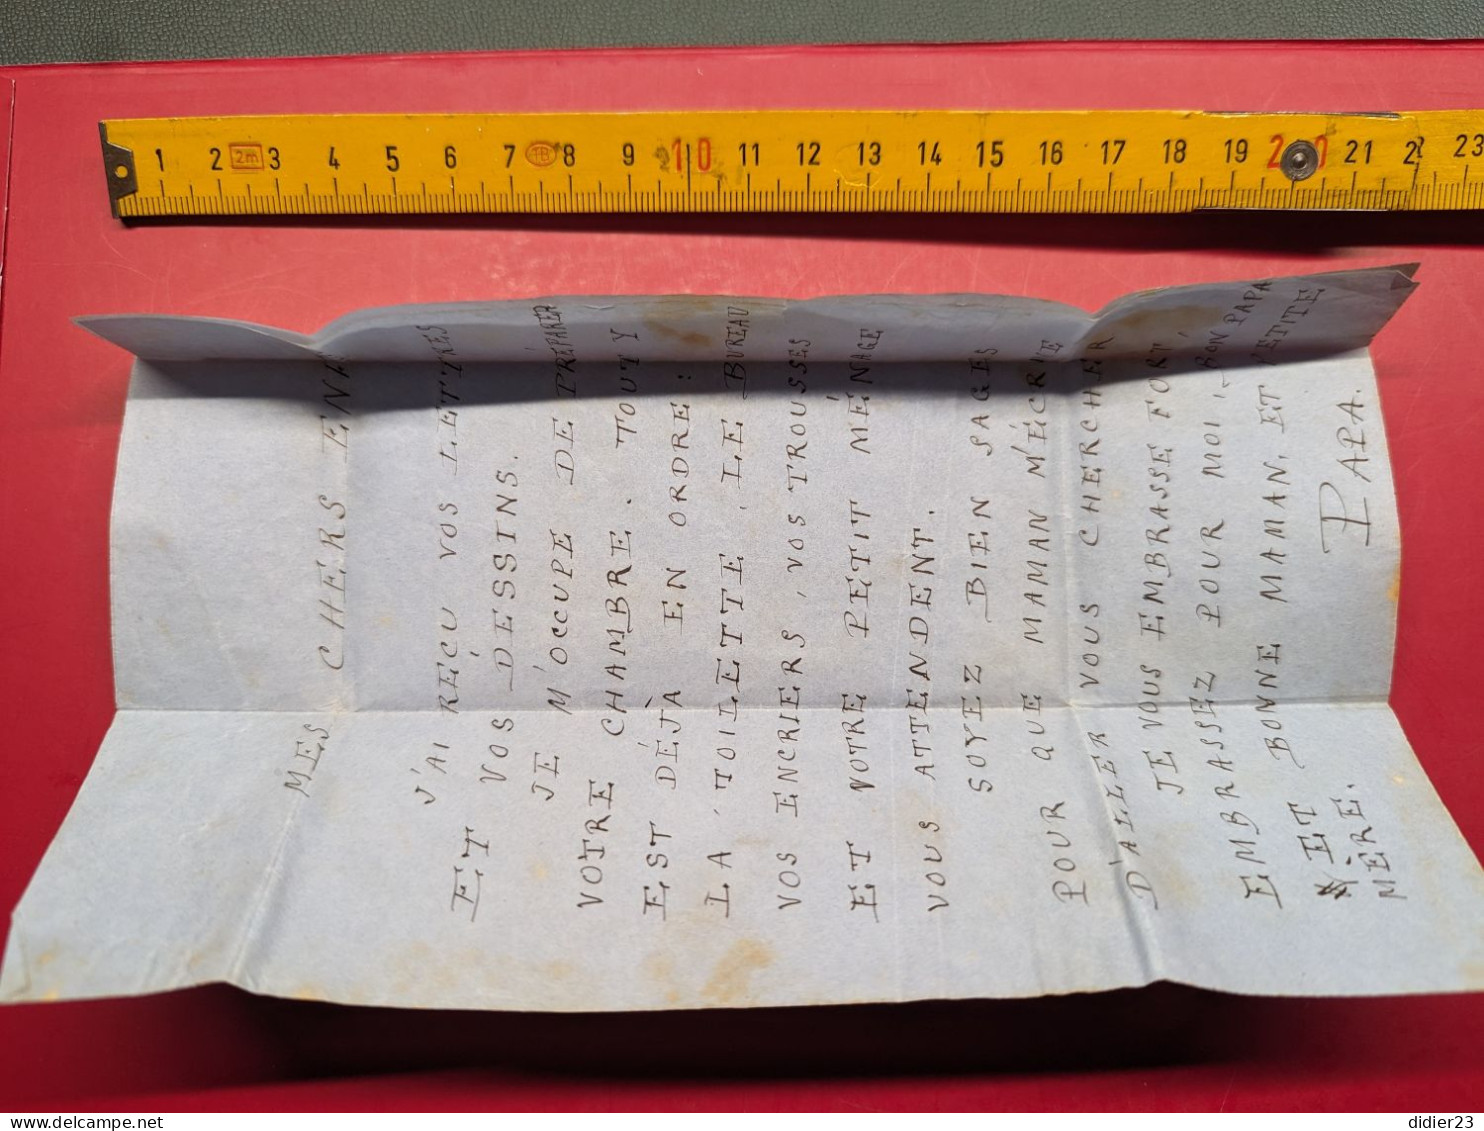 MES CHERS
J'AI RECU VOS LETTRES
ET VOS DESSINS.
JE M'OCCUPE DE PRÉPARER
VOTRE CHAMBRE. TOUT Y
EST DÉJÀ EN ORDRE :
LA TOILETTE, LE BUREAU
VOS ENCRIERS, VOS TROUSSES
ET VOTRE PETIT MÉNAGE
VOUS ATTENDENT.
SOYEZ BIEN SAGES
POUR QUE MAMAN M'ÉCRIVE
D'ALLER VOUS CHERCHER
JE VOUS EMBRASSE FORT,
EMBRASSEZ POUR MOI, BON PAPA
ET BONNE MAMAN, ET PETITE
MÈRE.
PAPA.
1 2 2m 3 4 5 6 7 TB 8 9 10 11 12 13 14 15 16 17 18 19 20 21 2 23
didier23